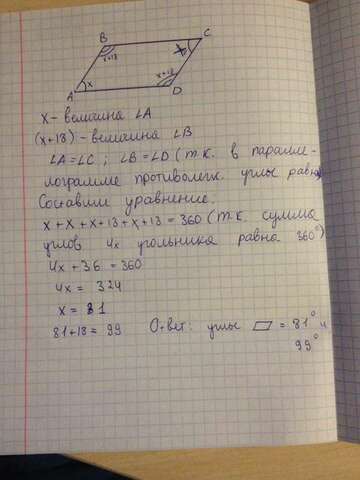 B
C
x+18
x
x+18
x
A
D
x - величина ∠A
(x+18) - величина ∠B
∠A=∠C ; ∠B=∠D (т.к. в паралле-
лограмме противолеж. углы равны)
Составим уравнение:
x+x+x+18+x+18=360 (т.к. сумма
углов 4х угольника равна 360°)
4x+36=360
4x = 324
x = 81
81+18=99 Ответ: углы ▱ = 81° и
99°